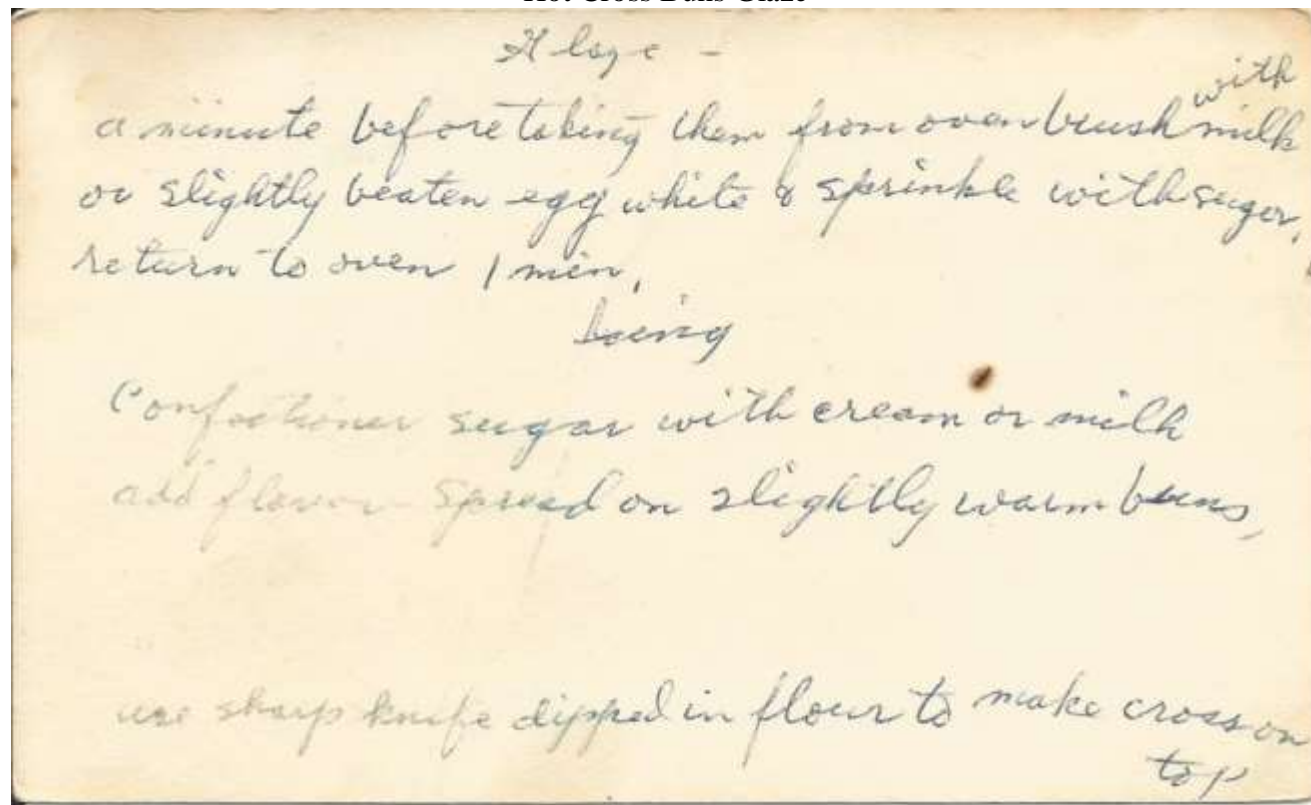 Hot Cross Buns Glaze
Glaze -
a minute before taking them from oven brush with milk
or slightly beaten egg white & sprinkle with sugar,
return to oven 1 min,
Icing
Confectioner sugar with cream or milk
add flavor - spread on slightly warm buns,
use sharp knife dipped in flour to make cross on
top